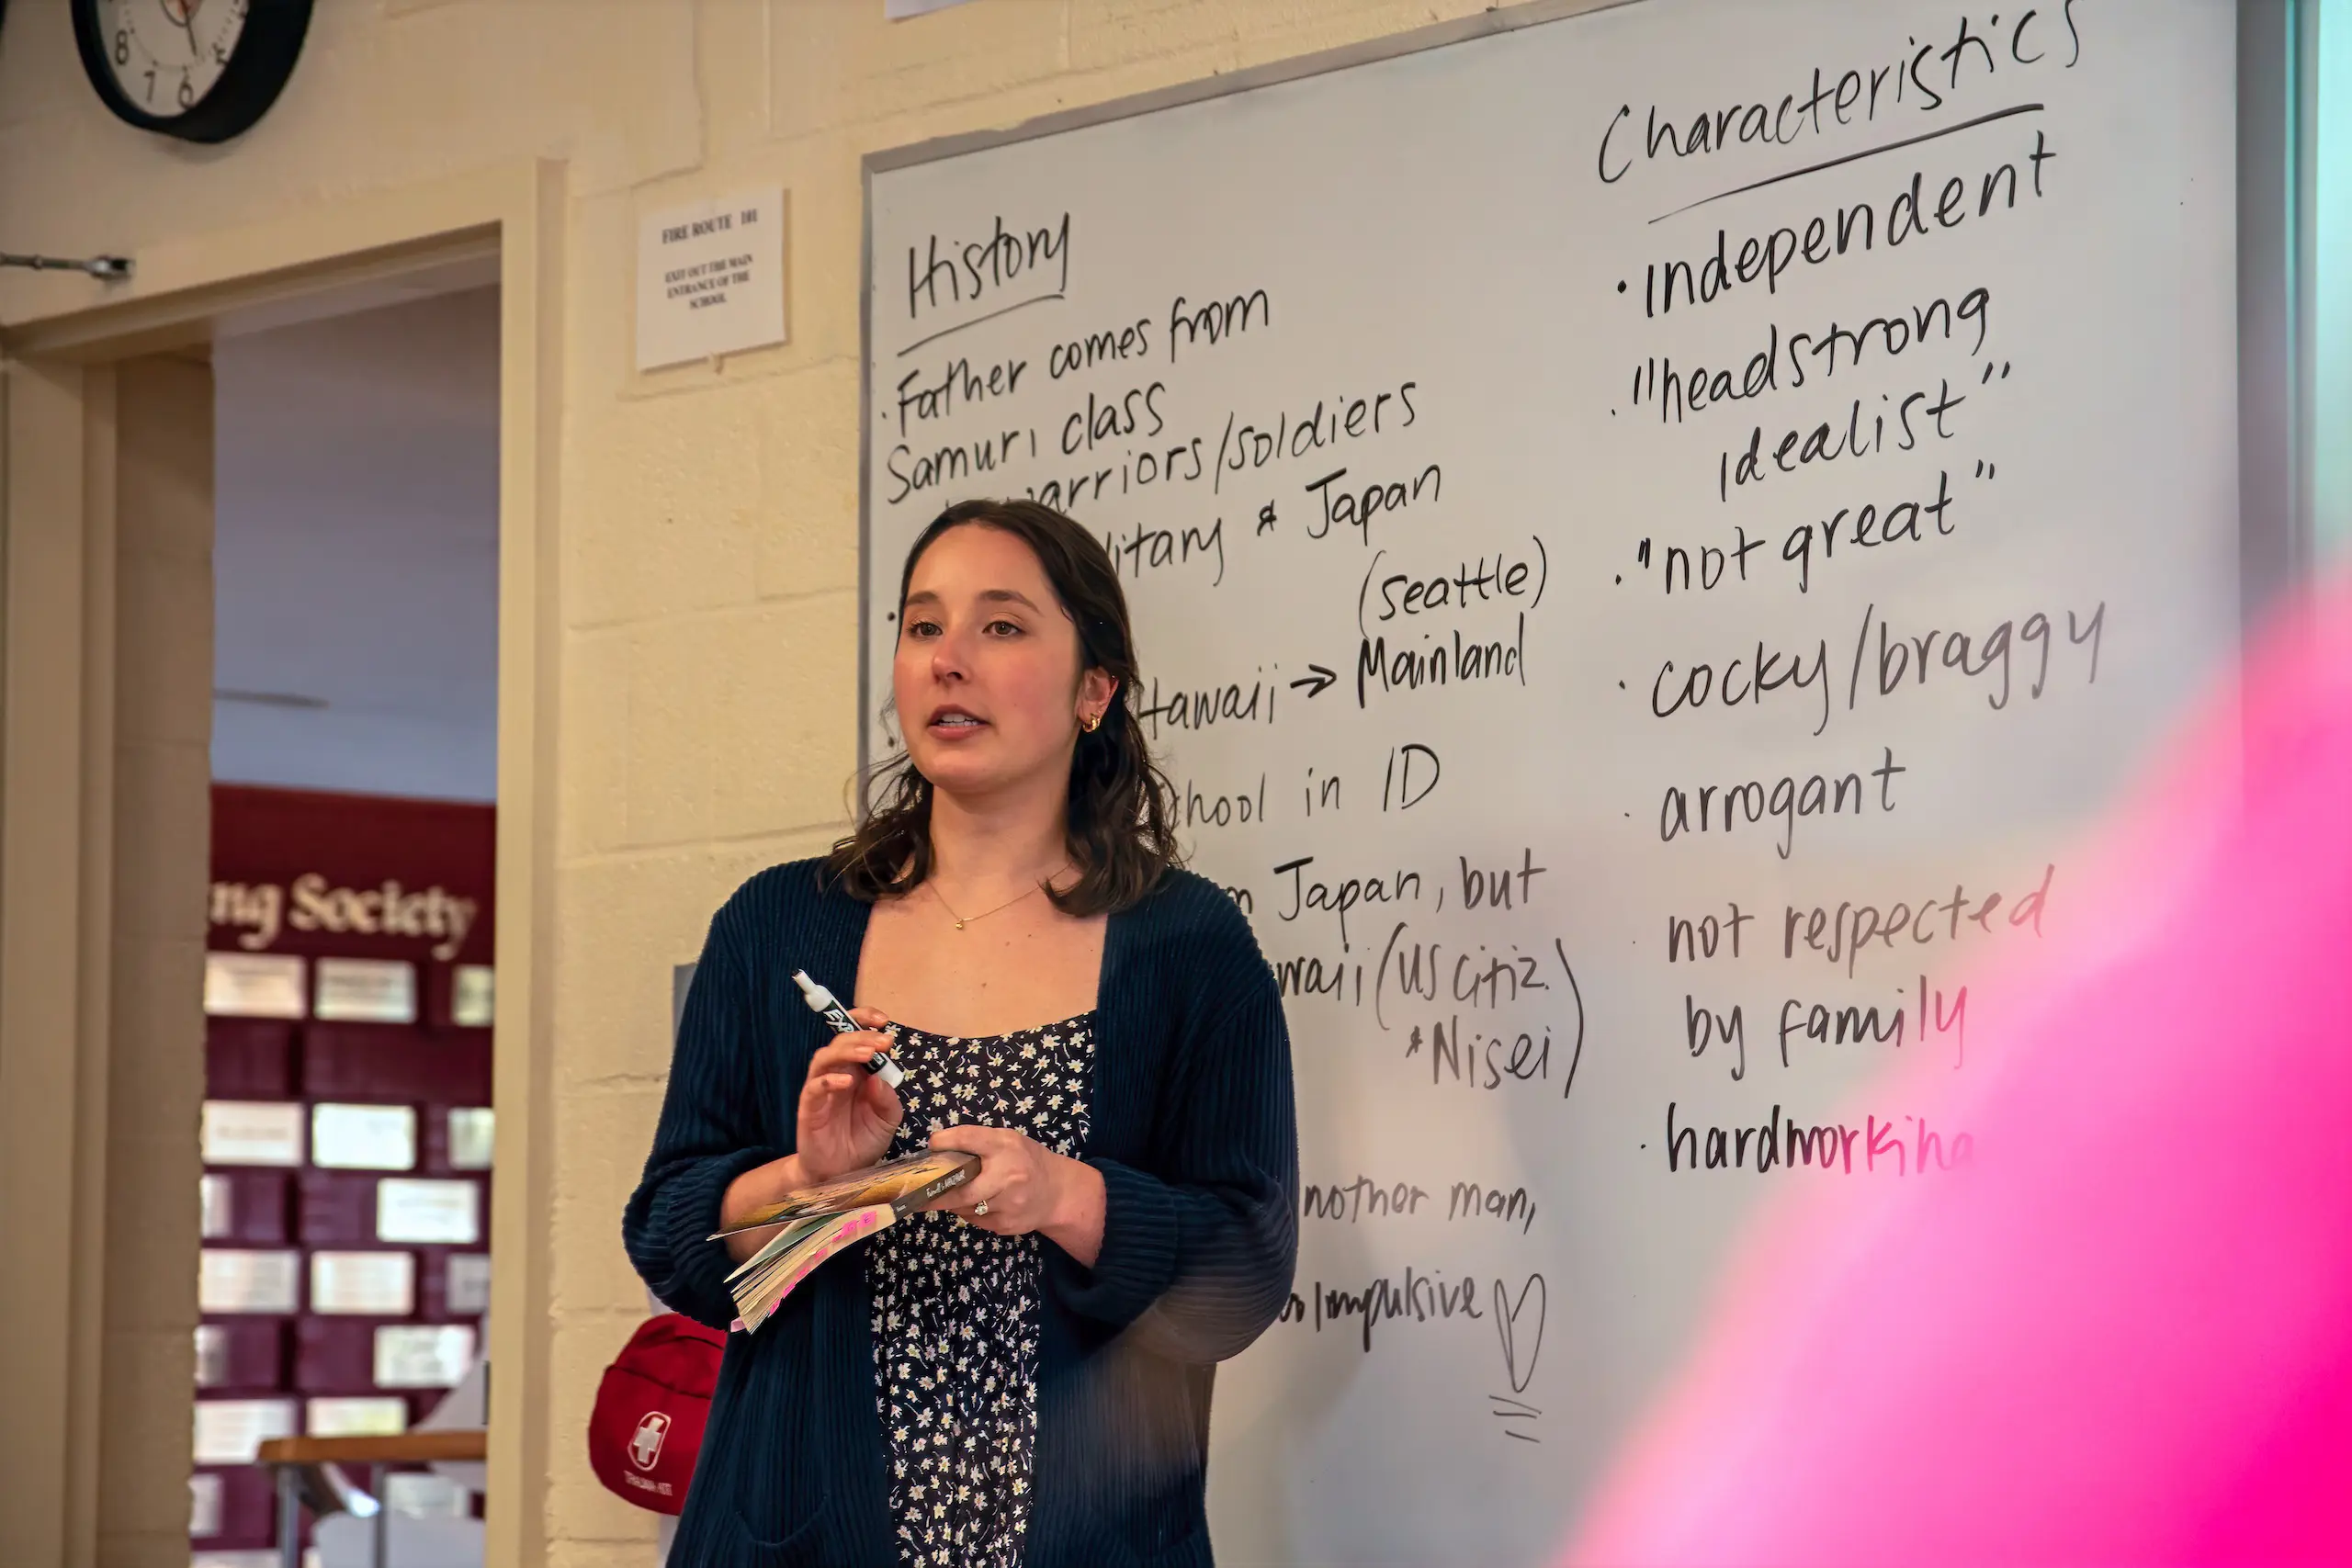 8
7
6
FIRE ROUTE 101
EXIT OUT THE MAIN
ENTRANCE OF THE
SCHOOL
ng Society
History
· Father comes from
Samuri class
warriors/soldiers
litary * Japan
(Seattle)
Hawaii → Mainland
chool in ID
Japan, but
waii (US Citiz.
*Nisei)
nother man,
Impulsive
Characteristics
· Independent
· "headstrong
idealist"
· "not great"
· cocky/braggy
· arrogant
not respected
by family
· hardworking
EXPO
Farewell to Manzanar